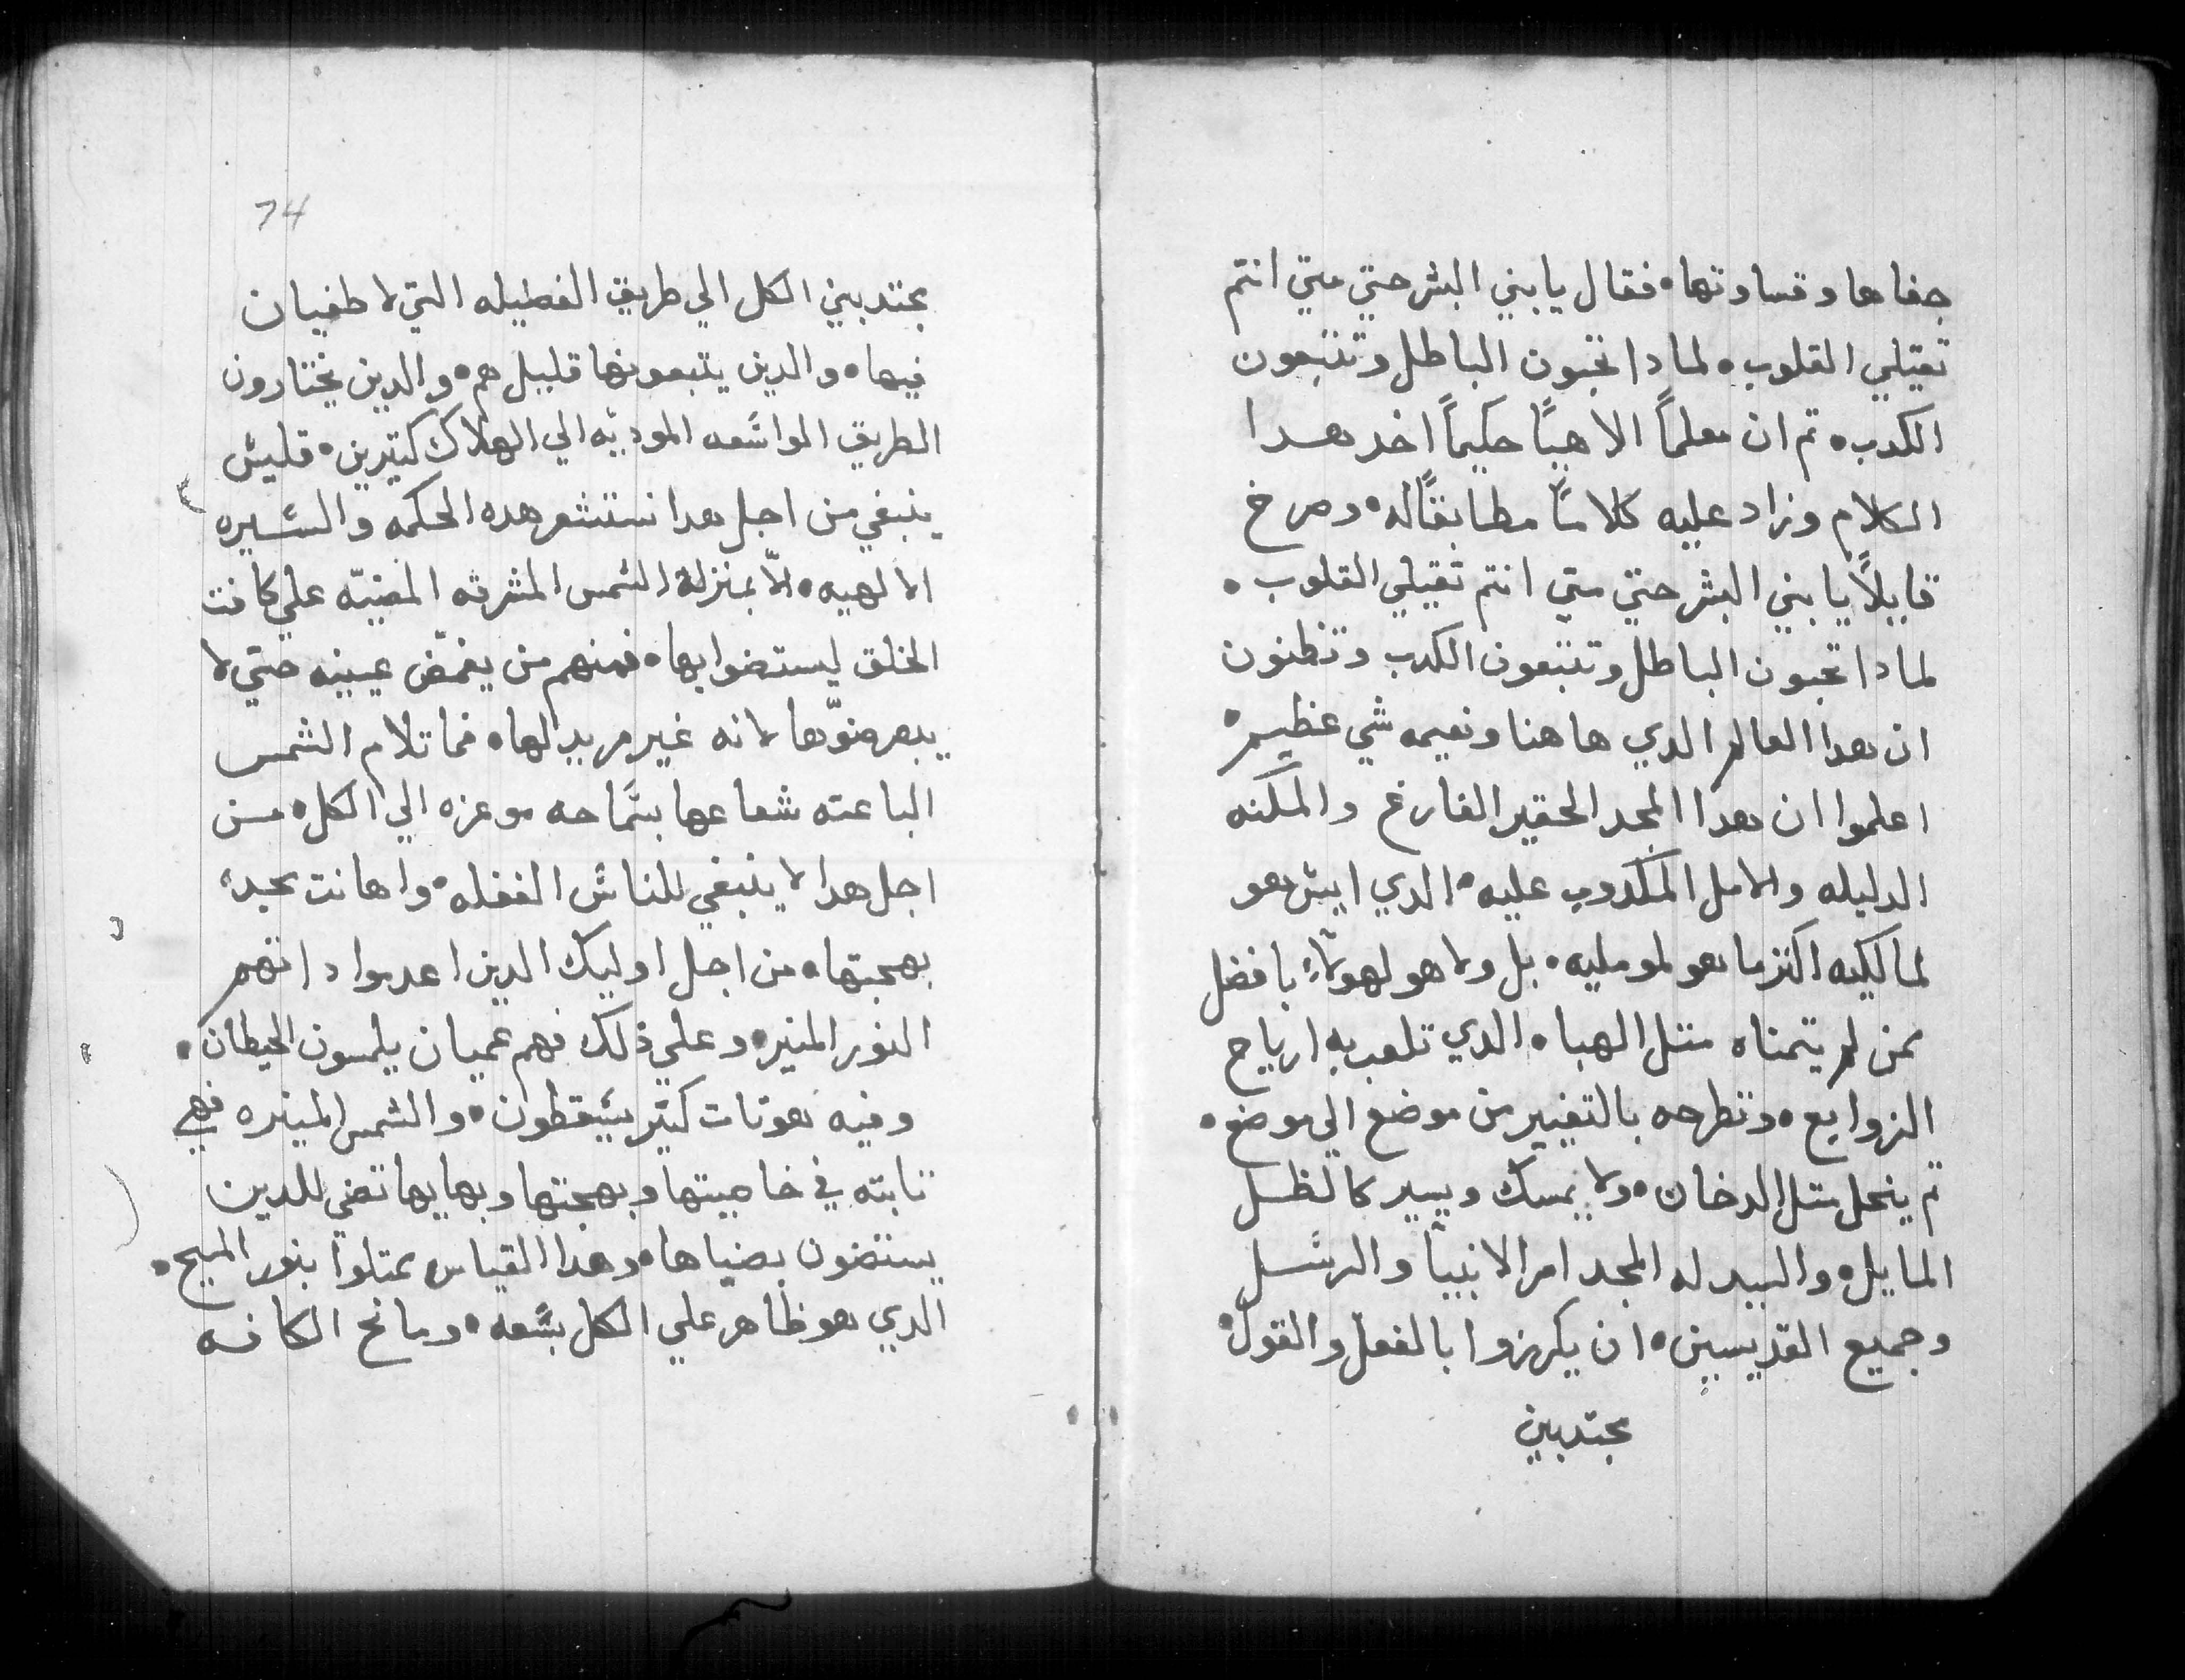 جفاها وقساوتها۰ فقال يابني البشر حتي متي انتم
تقيلي القلوب۰ لمادا تحبون الباطل وتتبعون
الكدب۰ تم ان معلماً الاهيًا حكيماً اخد هدا
الكلام وزاد عليه كلامًا مطابقًا له۰ وصرخ
قايلاً يابني البشر حتي متي انتم تقيلي القلوب۰
لمادا تحبون الباطل وتتبعون الكدب وتظنون
ان هدا العالم الدي هاهنا ونعيمه شي عظيم۰
اعلموا ان هدا المجد الحقير الفارغ والمكنه
الدليله والامل المكدوب عليه۰ الدي ايش هو
لمالكيه اكتر ما هو لمومليه۰ بل ولا هو لهولآء بافضل
ممن لم يتمناه متل الهبا۰ الدي تلعب به ارياح
الزوابع۰ وتطرحه بالتغيير من موضع الي موضع۰
تم ينحل متل الدخان۰ ولا يمسك ويسير كالظل
المايل۰ والسيد له المجد امر الانبيآ والرسل
وجميع القديسين۰ ان يكرزوا بالفعل والقول۰
مجتدبين
74
مجتدبين الكل الي طريق الفضيله التي لا طغيان
فيها۰ والدين يتبعونها قليل هم۰ والدين يختارون
الطريق الواسعه الموديه الي الهلاك كتيرين۰ فليس
ينبغي من اجل هدا نستشعر هده الحكمه والسيره
الالهيه۰ الّا بمنزلة الشمس المشرقه المضيّه علي كافت
الخلق ليستضوا بها۰ فمنهم من يغمّض عينيه حتي لا
يبصر ضوّها لانه غير مريد لها۰ فما تلام الشمس
الباعته شعاعها بسماحه موعزه الي الكل۰ من
اجل هدا لا ينبغي للناس الغفله۰ واهانت مجد
بهجتها۰ من اجل اوليك الدين اعدموا داتهم
النور المنير۰ وعلي ذلك فهم عميان يلمسون الحيطان۰
وفيه هوتات كتير يسقطون۰ والشمس المنيره فهي
تابته في خاصيتها وبهجتها وبهايها تضي للدين
يستضون بضياها۰ وهدا القياس يمتلوا بنور المسيح۰
الدي هو ظاهر علي الكل بسعه۰ ومانح الكافه